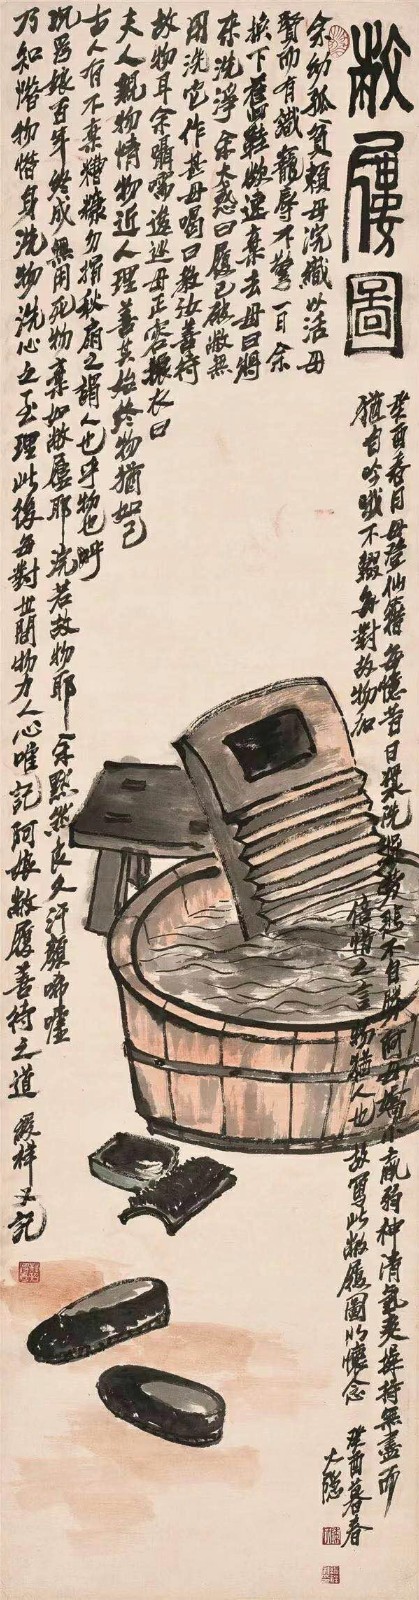 敝屨圖
癸酉春月母登仙籍每憶昔日洗操不自勝阿母嬌小羸弱神清氣爽操持無盡而
猶自吟哦不輟每對故物必倍惜之言物猶人也故寫此敝屨圖以懷念 癸酉暮春
大隱
余幼孤貧賴母浣織以活母
賢而有識寵辱不驚一日余
換下舊鞋欲速棄去母曰將
來洗淨余大惑曰履已破敝無
用洗它作甚母喝曰教汝善待
故物耳余囁嚅逡巡母正容振衣曰
夫人親物情物近人理善其始終物猶如己
古人有不棄糟糠勿捐秋扇之謂人也乎物也呼
況為娘百年終成無用死物棄如敝屨耶浣若故物耶余默然良久汗顏唏噓
乃知惜物惜身洗物洗心之至理此後每對世間物力人心唯記阿娘敝屨善待之道 綬祥又記